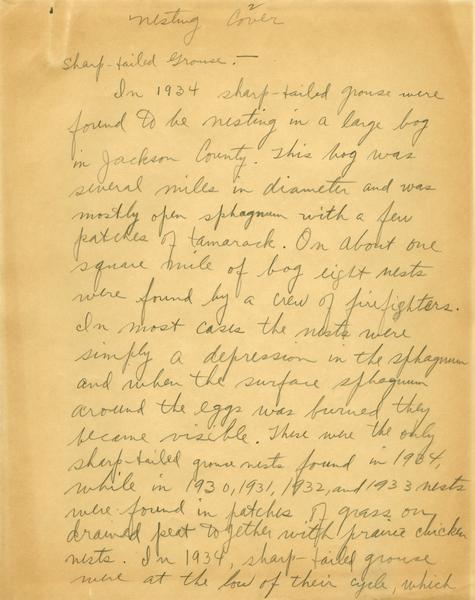 Nesting Cover
2
Sharp-tailed Grouse. —
In 1934 sharp-tailed grouse were
found to be nesting in a large bog
in Jackson County. This bog was
several miles in diameter and was
mostly open sphagnum with a few
patches of tamarack. On about one
square mile of bog eight nests
were found by a crew of firefighters.
In most cases the nests were
simply a depression in the sphagnum
and when the surface sphagnum
around the eggs was burned they
became visible. These were the only
sharp-tailed grouse nests found in 1934,
while in 1930, 1931, 1932, and 1933 nests
were found in patches of grass on
drained peat together with prairie chicken
nests. In 1934, sharp-tailed grouse
were at the low of their cycle, which